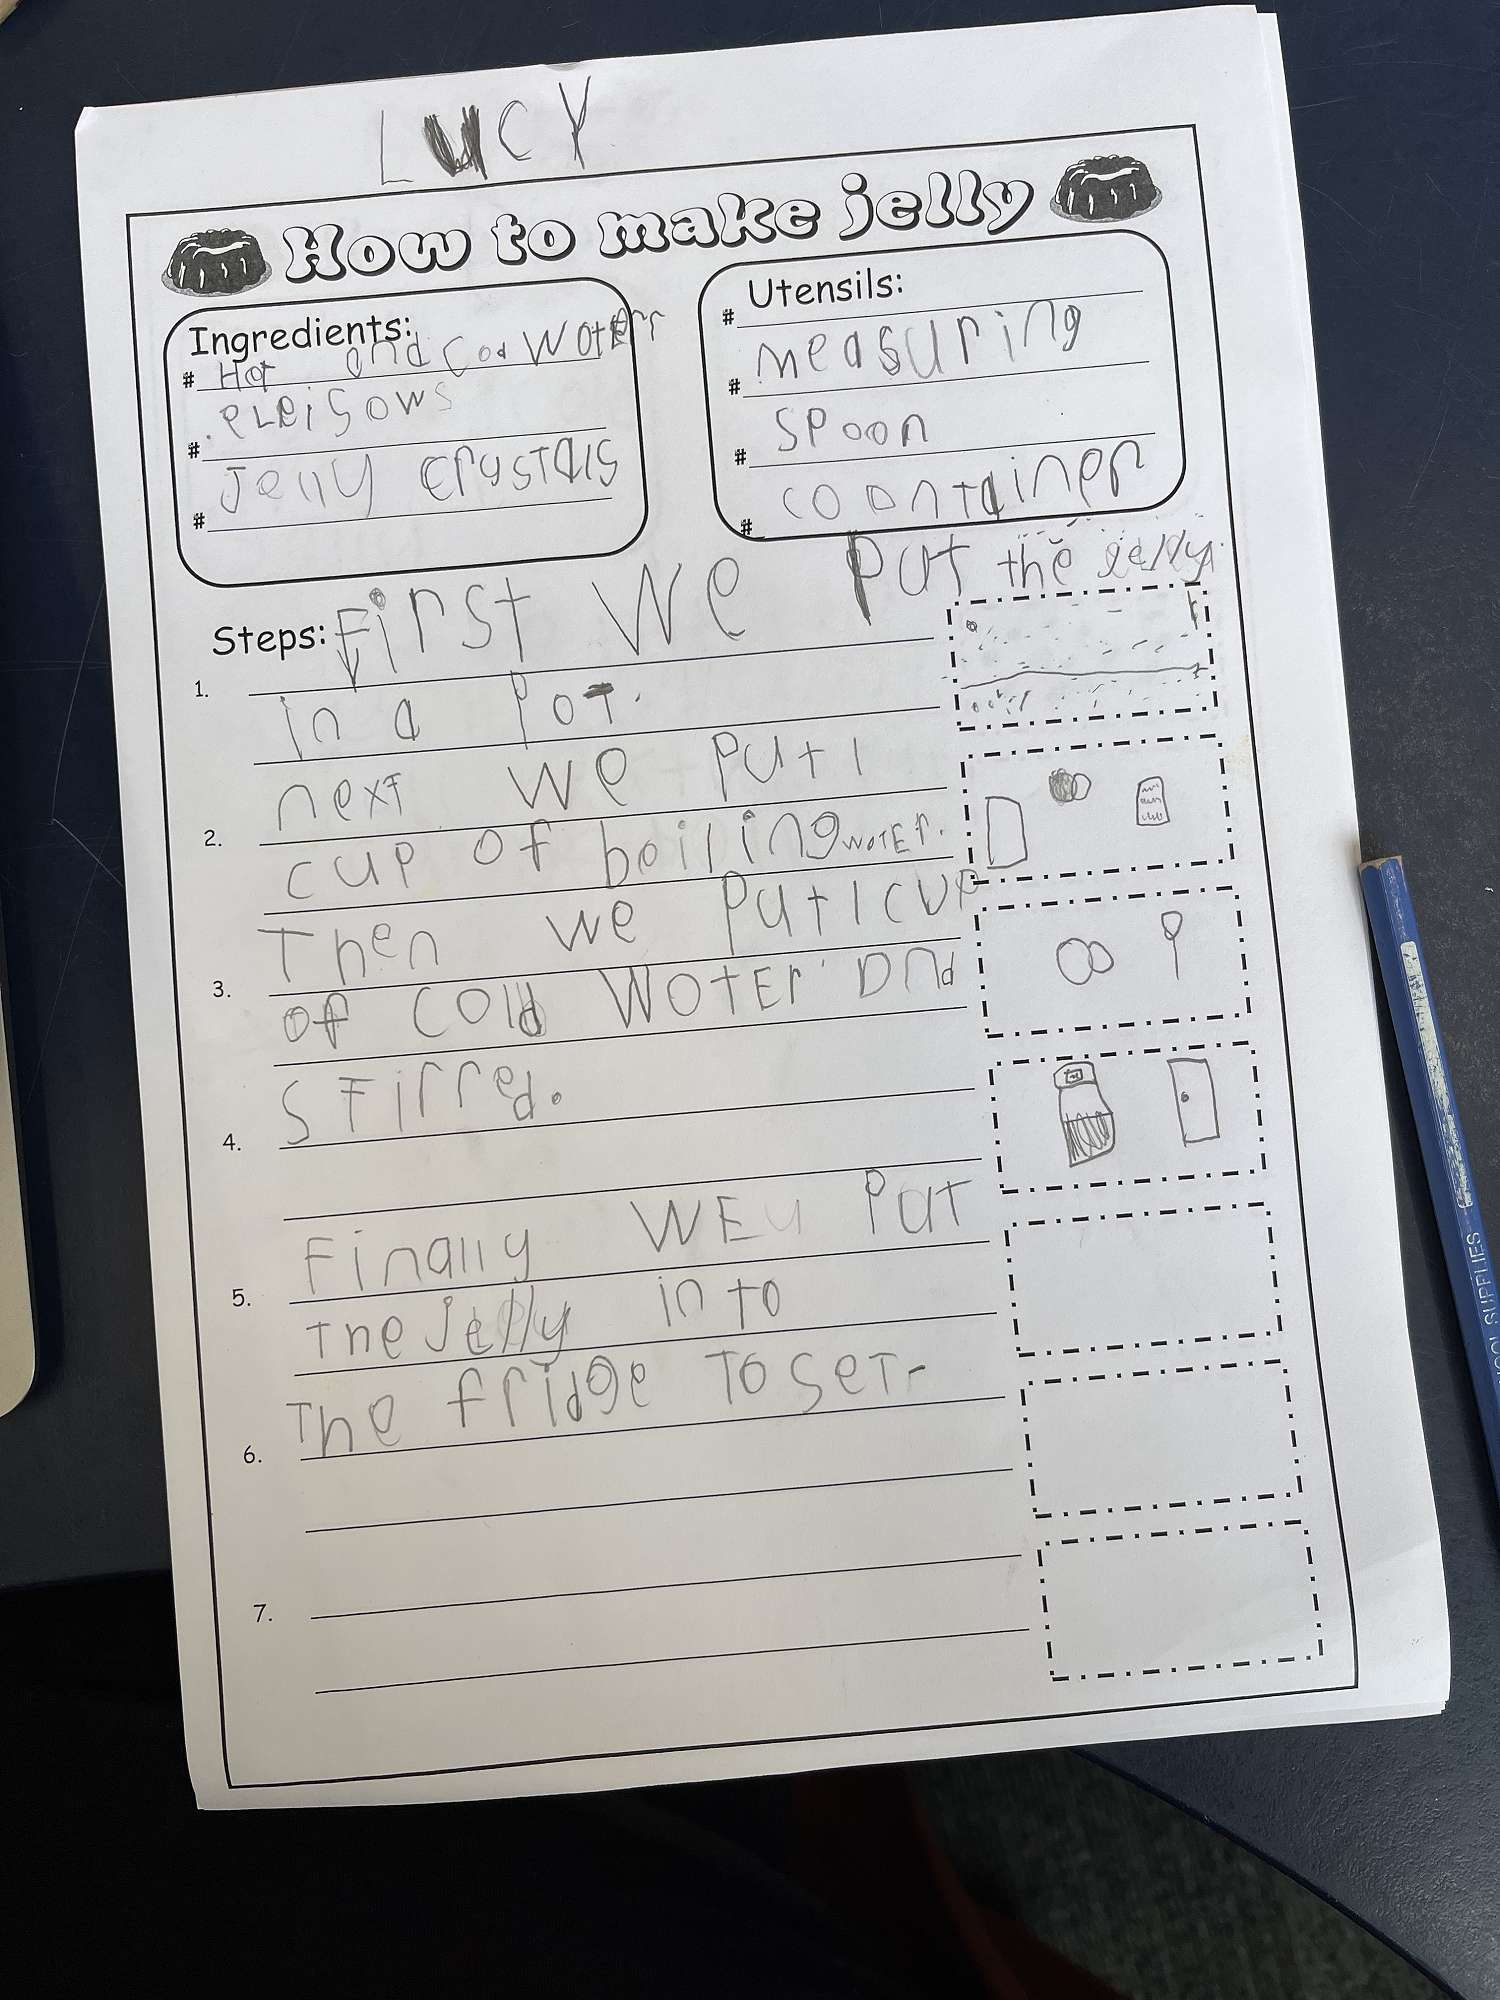 LUCY
How to make jelly
Ingredients:
# Hot and Cod Woterr
#
# Jelly crystals
Utensils:
#
# measuring
# spoon
# coontainer
First we put the jelly
Steps:
1. in a pot.
next we put 1
2. cup of boiling woter.
Then we put 1 cup
3. of cold Woter and
4. stirred.
Finally WE put
5. the jelly into
6. The fridge To set.
7.
SUPPLIES